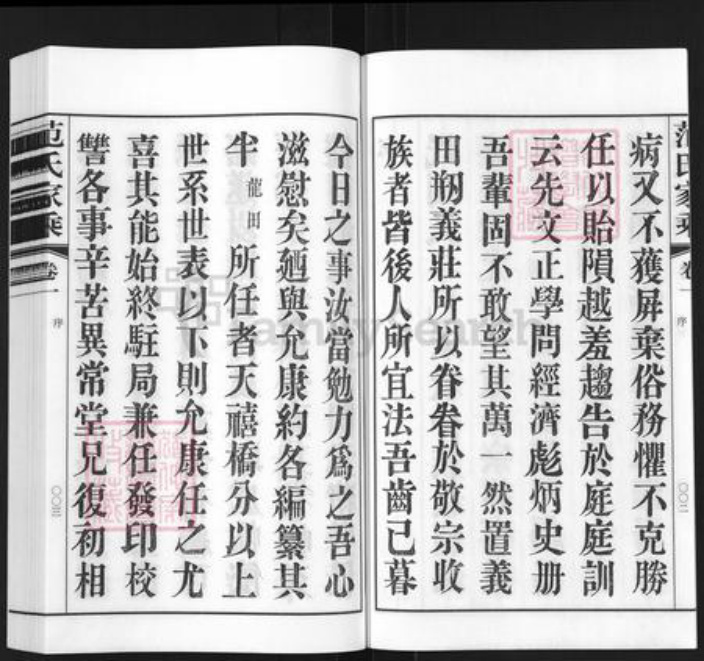 范氏家乘
卷一
序
〇〇三二
病又不獲屏棄俗務懼不克勝
任以貽隕越羞趨告於庭庭訓
云先文正學問經濟彪炳史册
吾輩固不敢望其萬一然置義
田剏義莊所以眷眷於敬宗收
族者皆後人所宜法吾齒已暮
今日之事汝當勉力爲之吾心
滋慰矣廼與允康約各編纂其
半龍田所任者天禧橋分以上
世系世表以下則允康任之尤
喜其能始終駐局兼任發印校
讐各事辛苦異常堂兄復初相
范氏家乘
卷一
序